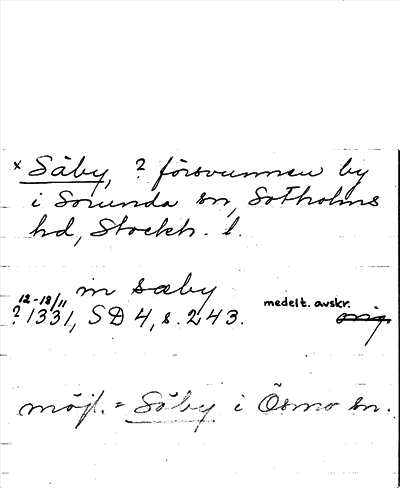 x Säby, ? försvunnen by
i Sorunda sn, Sotholms
hd, Stockh. l.
in sæby
12-18/11 medelt. avskr.
? 1331, SD 4, s. 243. orig
möjl. = Säby i Ösmo sn.